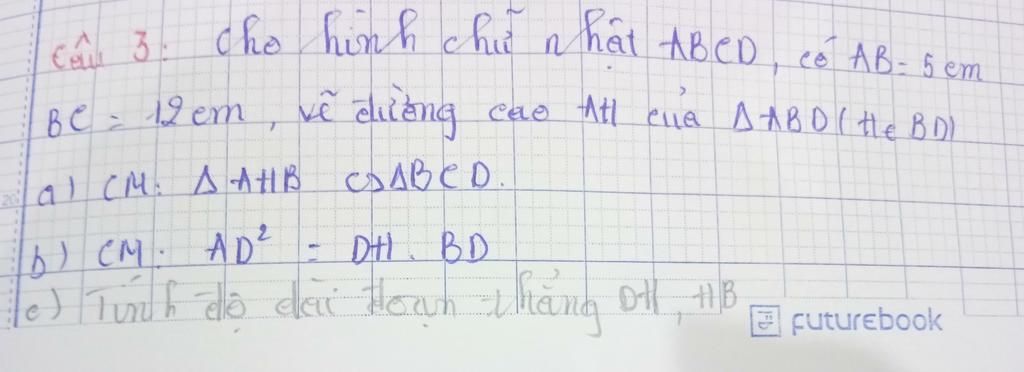 Câu 3: Cho hình chữ nhật ABCD, có AB = 5 cm
BC = 12 cm, vẽ đường cao AH của Δ ABD (H ∈ BD)
a) CM: Δ AHB ∽ Δ BCD.
b) CM: AD² = DH . BD
c) Tính độ dài đoạn thẳng DH, HB
FUTUREBOOK